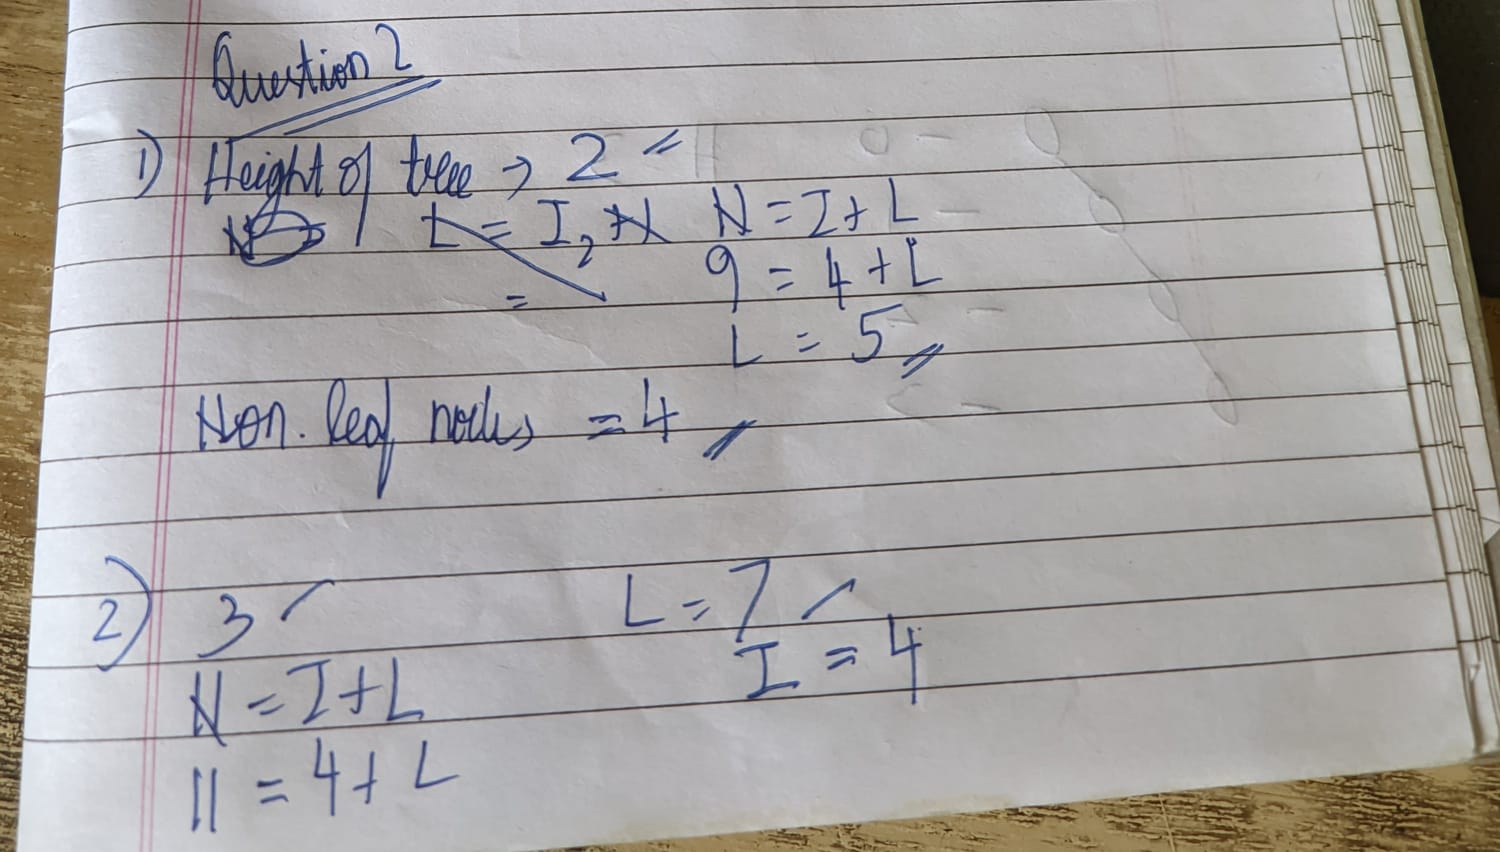 Question 2
1) Height of tree → 2
L = I2 + N N = I + L
= 9 = 4 + L
L = 5
Non. leaf nodes = 4
2) 3 L = 7
I = 4
N = I + L
11 = 4 + L